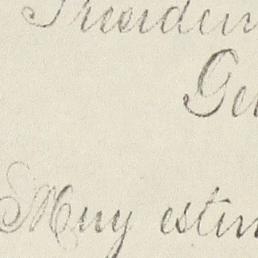 Presiden
Ge
Muy estim